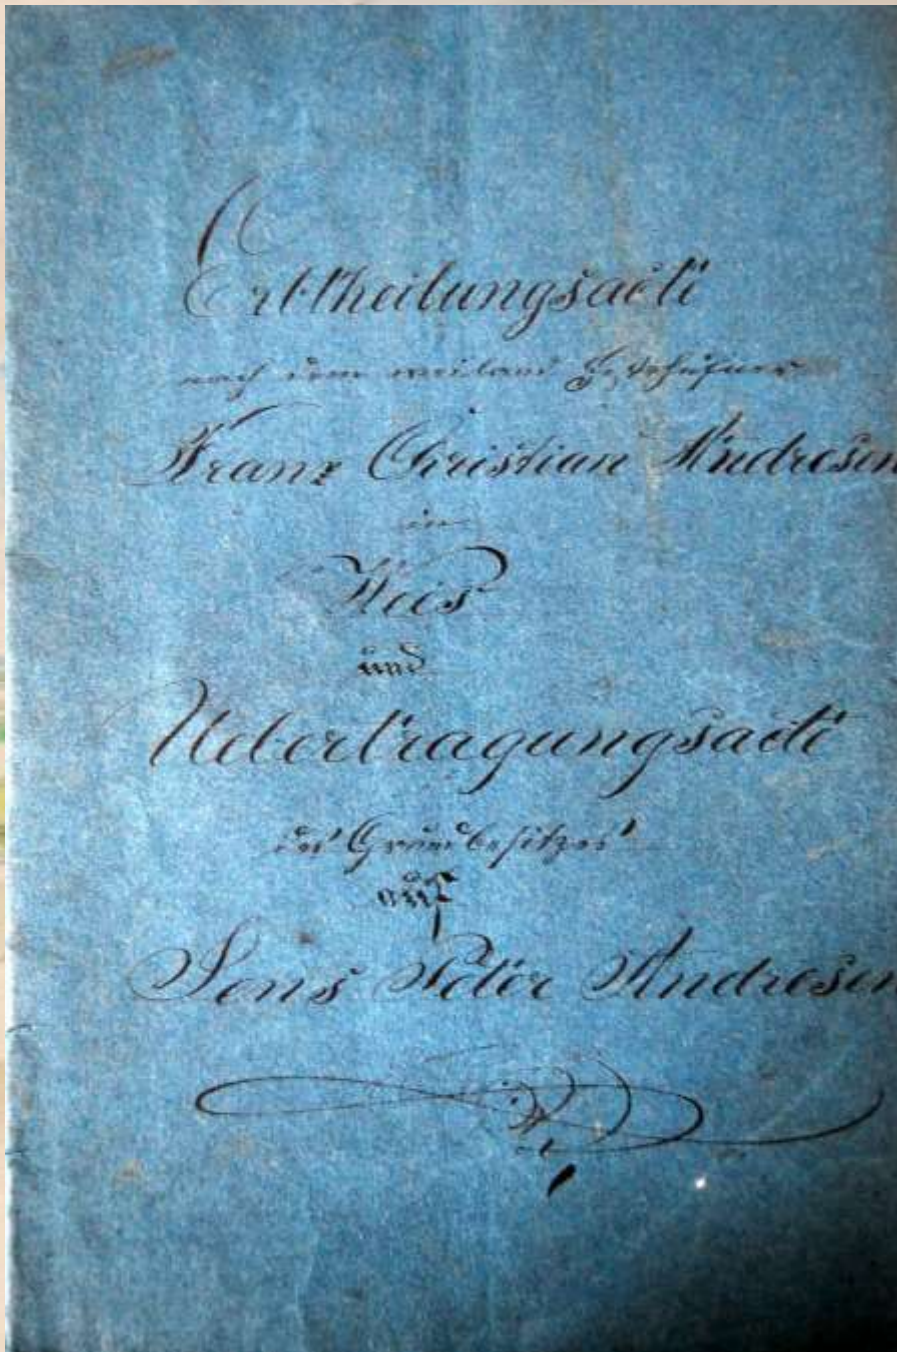 Erbtheilungsacte
nach dem weiland
Franz Christian Andresen
in
und
Uebertragungsacte
des Grundbesitzes
auf
Jens Peter Andresen